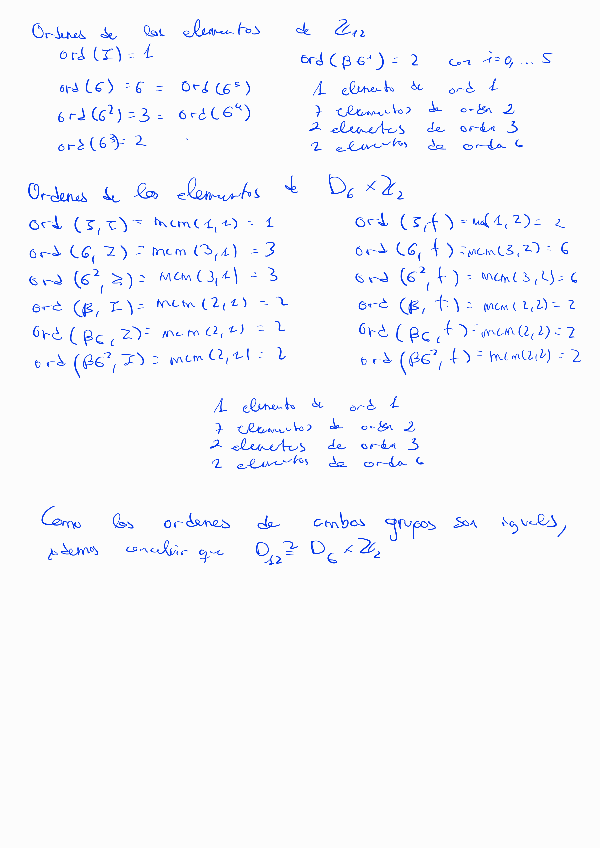 Ordenes de los elementos de ℤ₁₂
ord(I) = 1
ord(6) = 6 = ord(6⁵)
ord(6²) = 3 = ord(6⁴)
ord(6³) = 2
ord(β6ⁱ) = 2 con i=0, ... 5
1 elemento de ord 1
7 elementos de orden 2
2 elementos de orden 3
2 elementos de orden 6
Ordenes de los elementos de D₆ × ℤ₂
ord (I, I) = mcm(1,1) = 1
ord (6, I) = mcm(3,1) = 3
ord (6², I) = mcm(3,1) = 3
ord (β, I) = mcm(2,1) = 2
ord (β6, I) = mcm(2,1) = 2
ord (β6², I) = mcm(2,1) = 2
ord (I, f) = mcm(1,2) = 2
ord (6, f) = mcm(3,2) = 6
ord (6², f) = mcm(3,2) = 6
ord (β, f) = mcm(2,2) = 2
ord (β6, f) = mcm(2,2) = 2
ord (β6², f) = mcm(2,2) = 2
1 elemento de ord 1
7 elementos de orden 2
2 elementos de orden 3
2 elementos de orden 6
Como los ordenes de ambos grupos son iguales,
podemos concluir que D₁₂ ≅ D₆ × ℤ₂